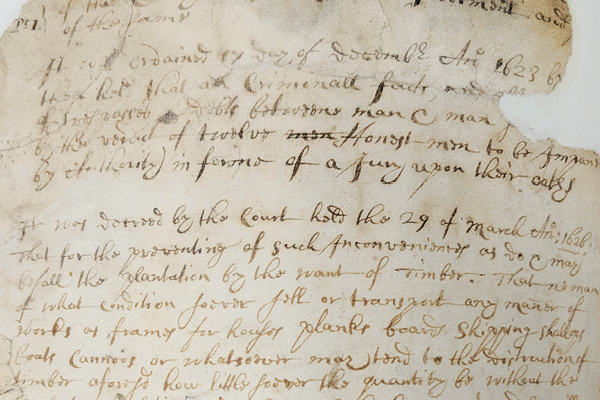 of the
of the same
It was ordained 17 day of decembr Ano 1623 by
the held that all Criminall facts, and
of trespasses debts betweene man & man
by the verdict of twelve men Honest men to be Impan
by Authority) in forme of a Jury upon their oaths
It was decreed by the Court held the 29 of March Ano: 1626.
That for the preventing of such Inconveniences as do & may
befall the plantation by the want of Timber. That no man
of what condition soever sell or transport any maner of
works as frames for houses planks boards Shipping shallops
boats Cannoos or whatsoever may tend to the distruction of
timber aforesd how little soever the quantity be without the